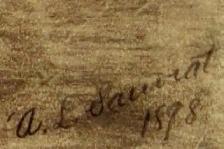 A. L. Saurrat
1898